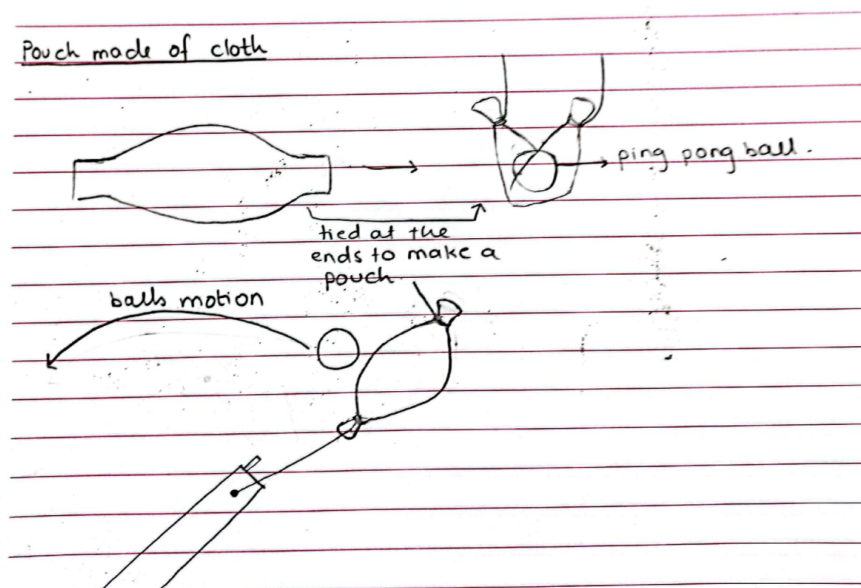 Pouch made of cloth
ping pong ball.
tied at the
ends to make a
pouch
balls motion